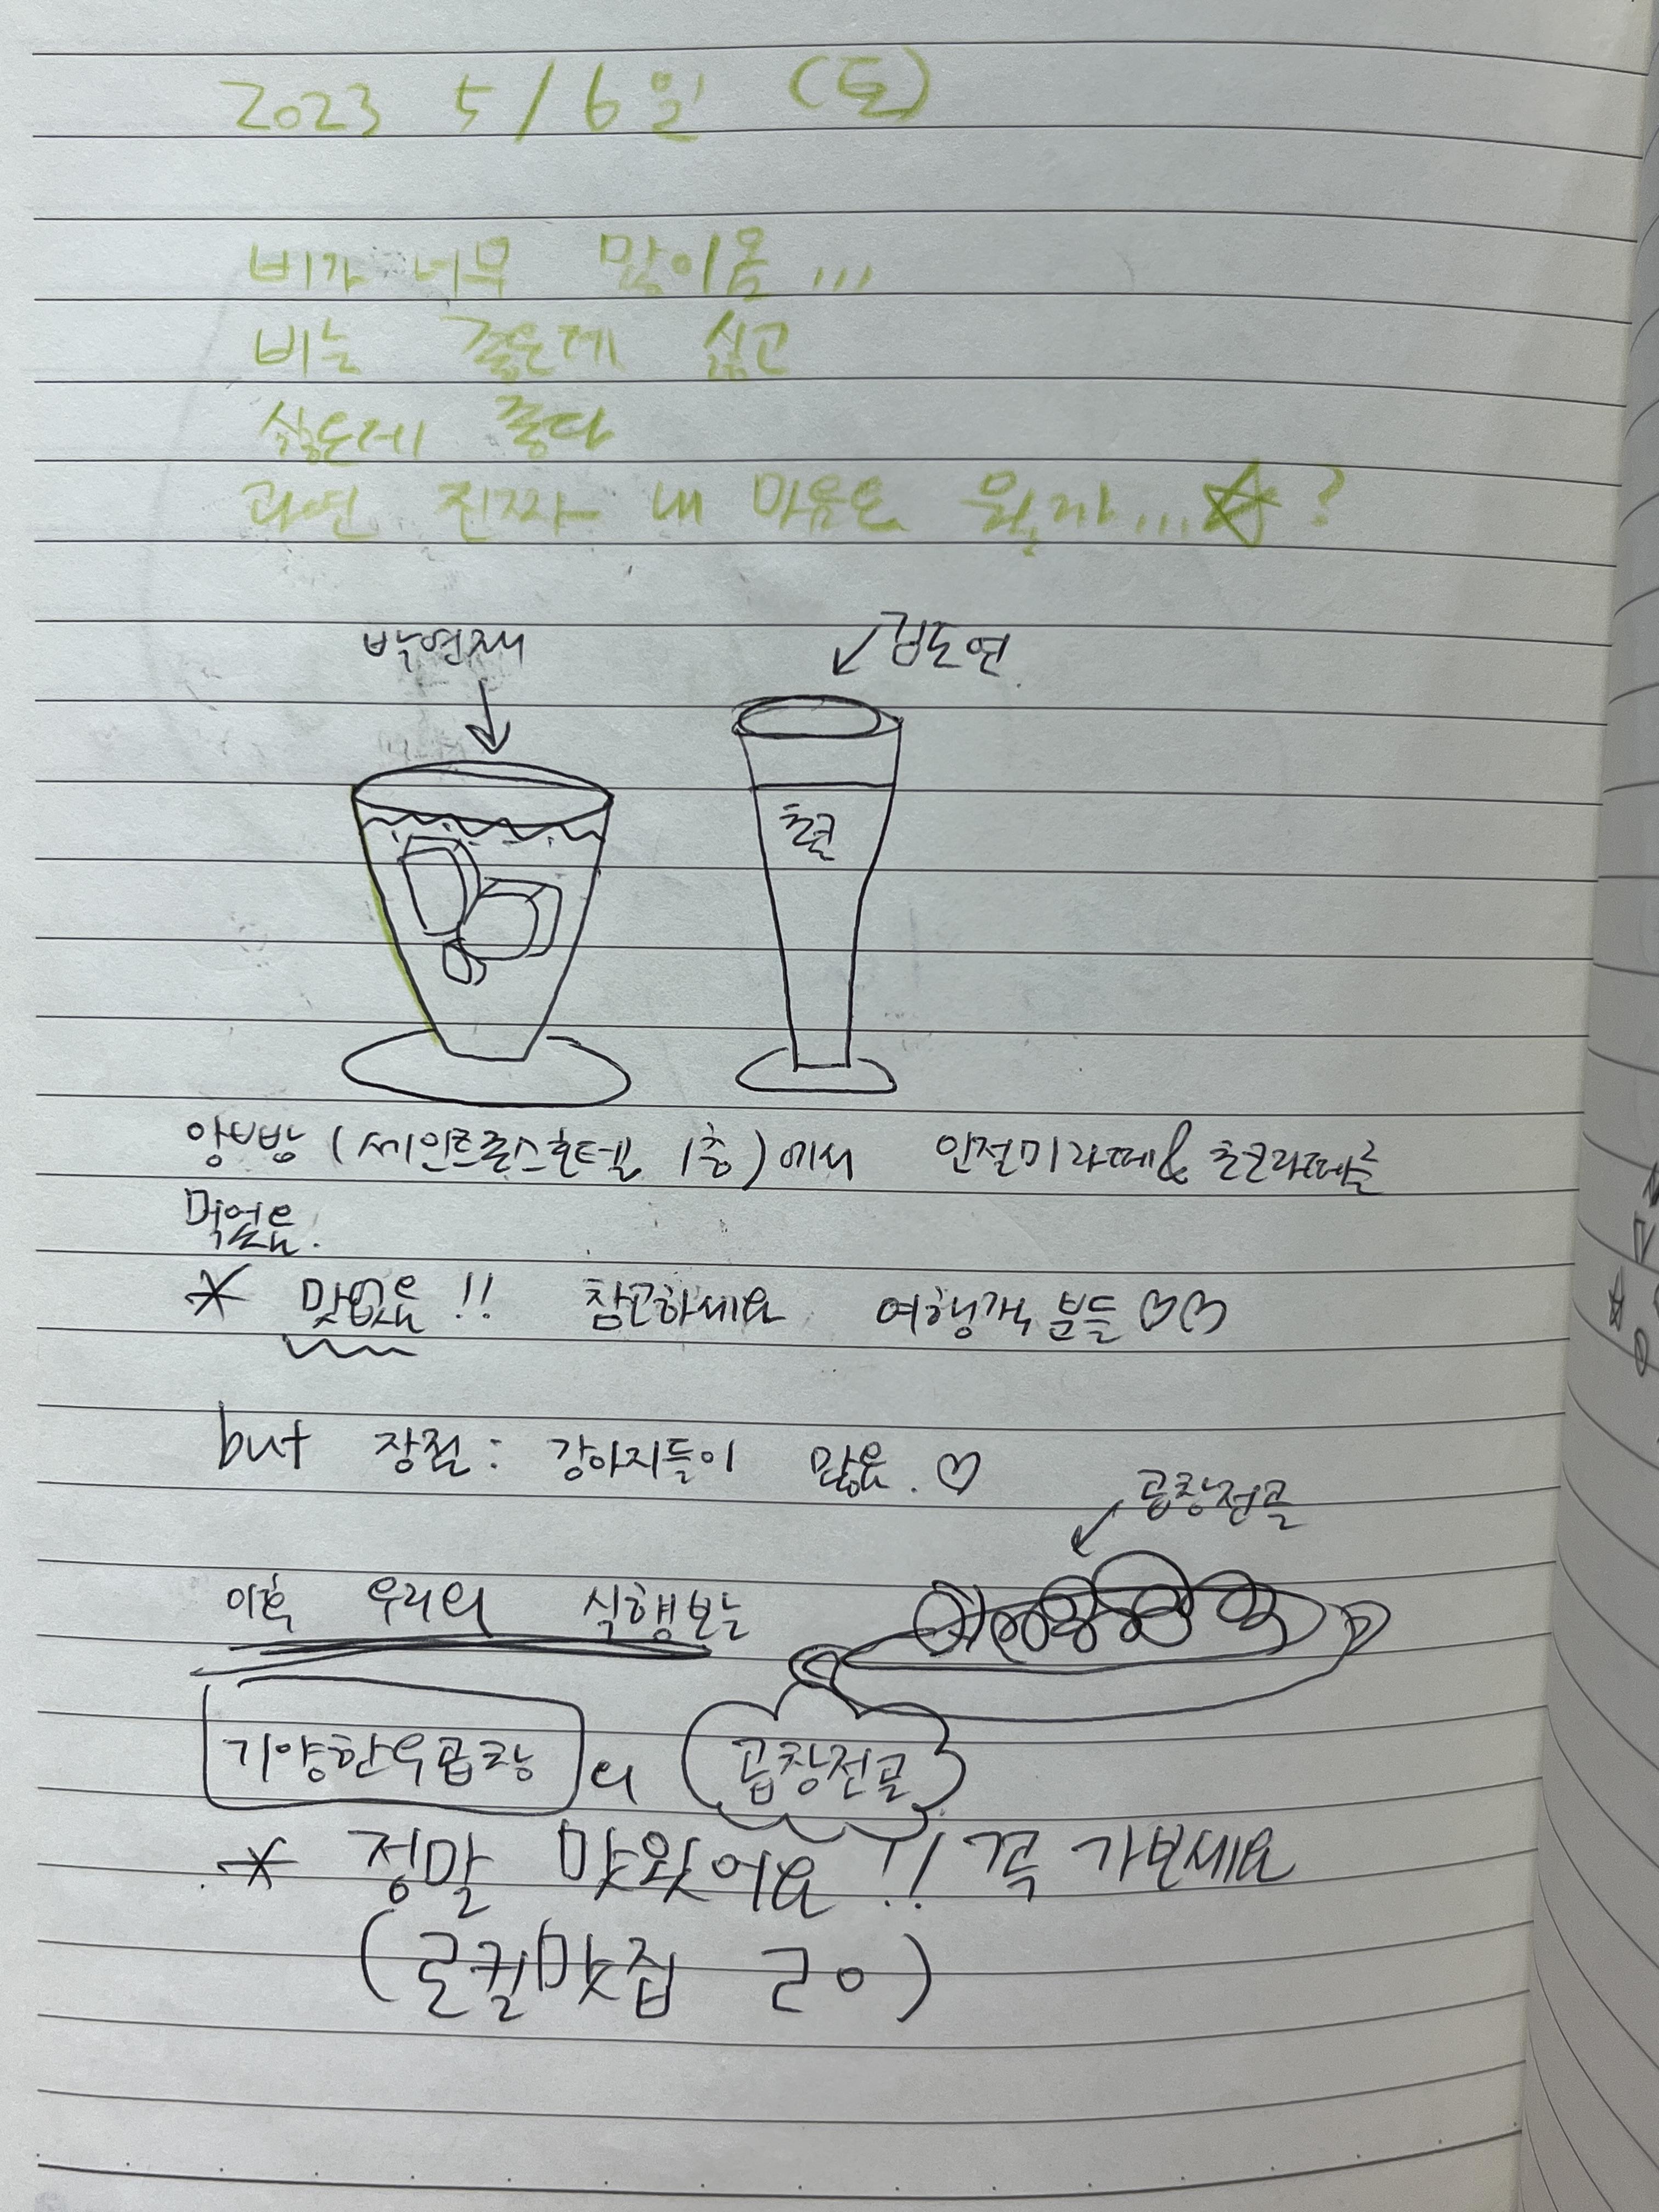 2023 5/6일 (토)
비가 너무 많이옴...
비는 좋은데 싫고
싫은데 좋다
과연 진짜 내 마음은 뭘까...☆?
박연재
김도연
초코
앙빠방 (세인트존스호텔 1층)에서 인절미라떼& 초코라떼를
먹었음.
* 맛없음!! 참고하세요 여행객분들♡♡
but 장점: 강아지들이 많음. ♡
곱창전골
이후 우리의 식행보는
기양한우곱창 의 곱창전골
* 정말 맛있어요!! 꼭 가보세요
(로컬맛집 ㄹㅇ)